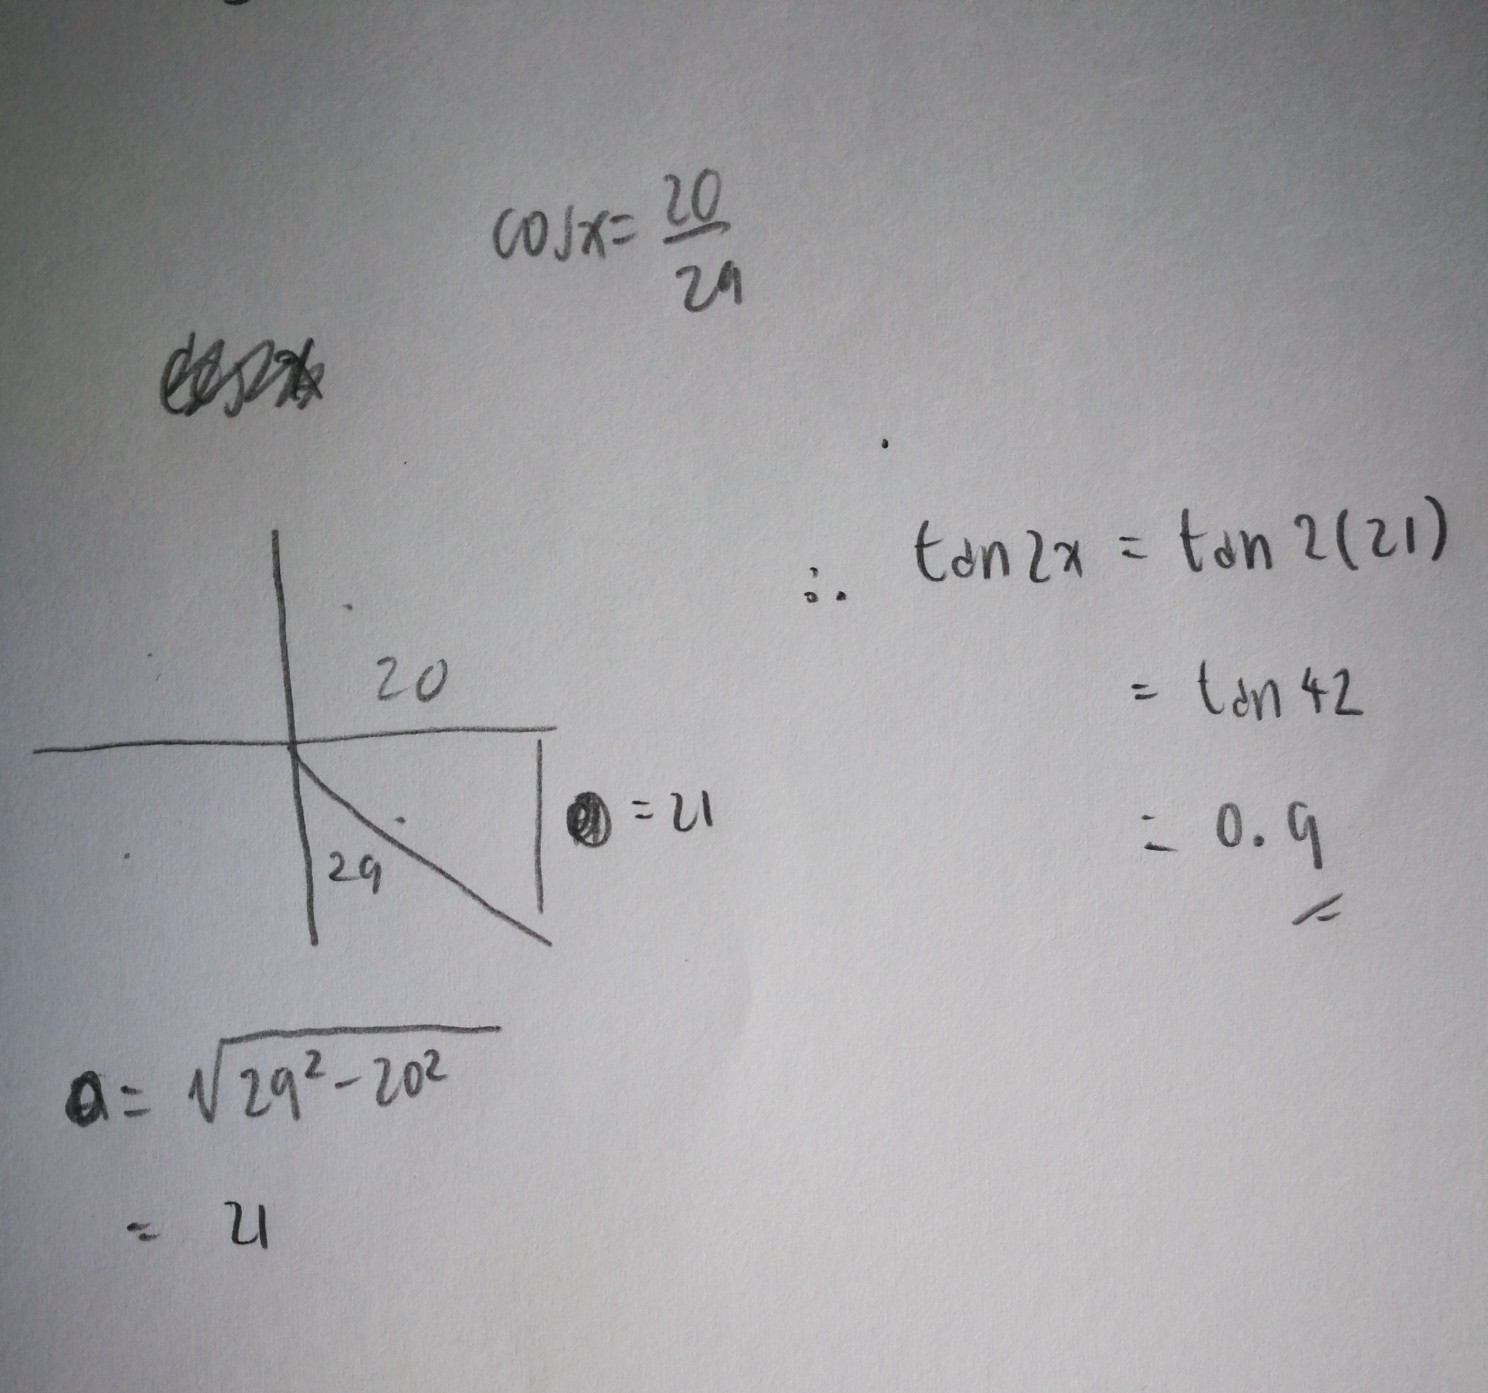 cosx = 20/29
20
29
= 21
a = √(29² - 20²)
= 21
∴ tan2x = tan 2(21)
= tan 42
= 0.9